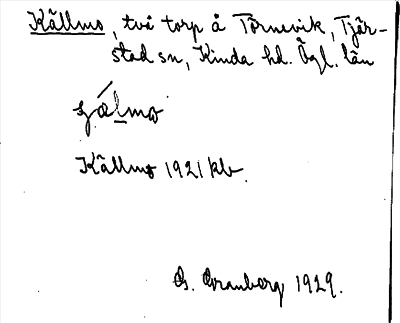 Källmo, två torp å Törnevik, Tjär-
stad sn, Kinda hd. Ögl. län
Källmo 1921 kb.
G. Granberg 1929.